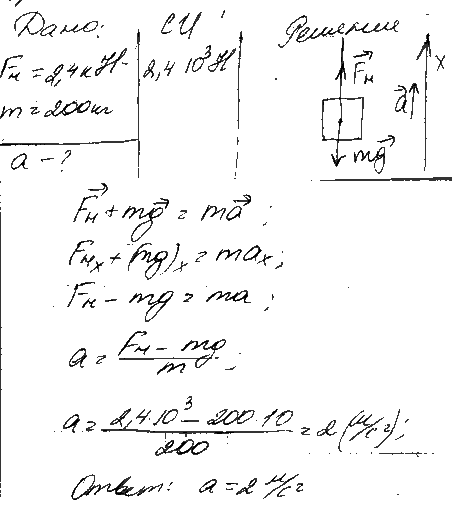 Дано: СИ Решение
Fн = 2,4 кН 2,4·10³ Н
m = 200 кг
a - ?
F⃗н x
a⃗
mg⃗
F⃗н + mg⃗ = ma⃗;
Fнₓ + (mg)ₓ = maₓ;
Fн - mg = ma;
a = (Fн - mg)/m;
a = (2,4·10³ - 200·10)/200 = 2 (м/с²);
Ответ: a = 2 м/с²